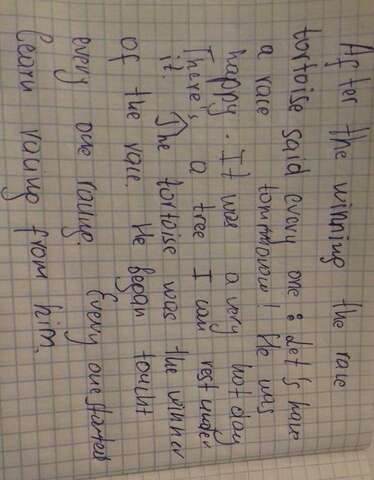 After the winning the race
tortoise said every one: Let's have
a race tommorow! He was
happy. It was a very hot day
There's a tree I can rest under
it. The tortoise was the winner
of the race. He began toucht
every one racing. Every one started
learn racing from him.